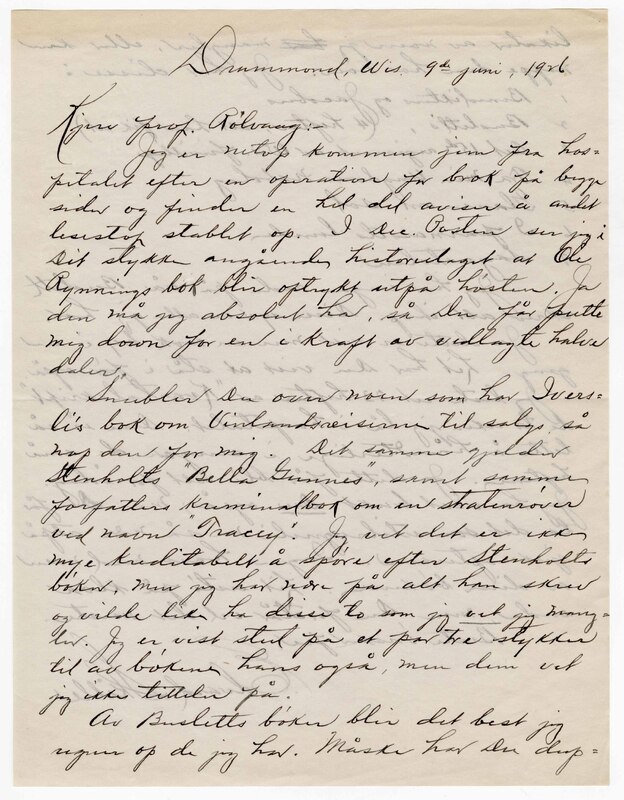 Drummond, Wis. 9de juni, 1926
Kjære prof. Rölvaag:-
Jeg er netop kommen hjem fra hos=
pitalet efter en operation for brok på begge
sider og finder en hel del aviser å andet
lesestof stablet op. I Dec. Posten ser jeg i
Dit stykke angående historielaget at Ole
Rynnings bok blir optrykt utpå høsten. Ja
den må jeg absolut ha, så Du får putte
mig down for en i kraft av vedlagte halve
daler.
Snubler Du over noen som har Ivers=
lis bok om Vinlandsreiserne til salgs, så
nap den for mig. Det samme gjelder
Stenholts "Bella Gunnes", samt samme
forfatters kriminalbok om en stratenrøver
ved navn "Tracey". Jeg vet det er ikke
mye kreditabelt å spøre efter Stenholts
bøker, men jeg har nære på alt han skrev
og vilde like ha disse to som jeg vet jeg mang=
ler. Jeg er vist stul på et par tre stykker
til av bøkene hans også, men dem vet
jeg ikke titteler på.
Av Busletts bøker blir det best jeg
regner op de jeg har. Måske har Du dup=